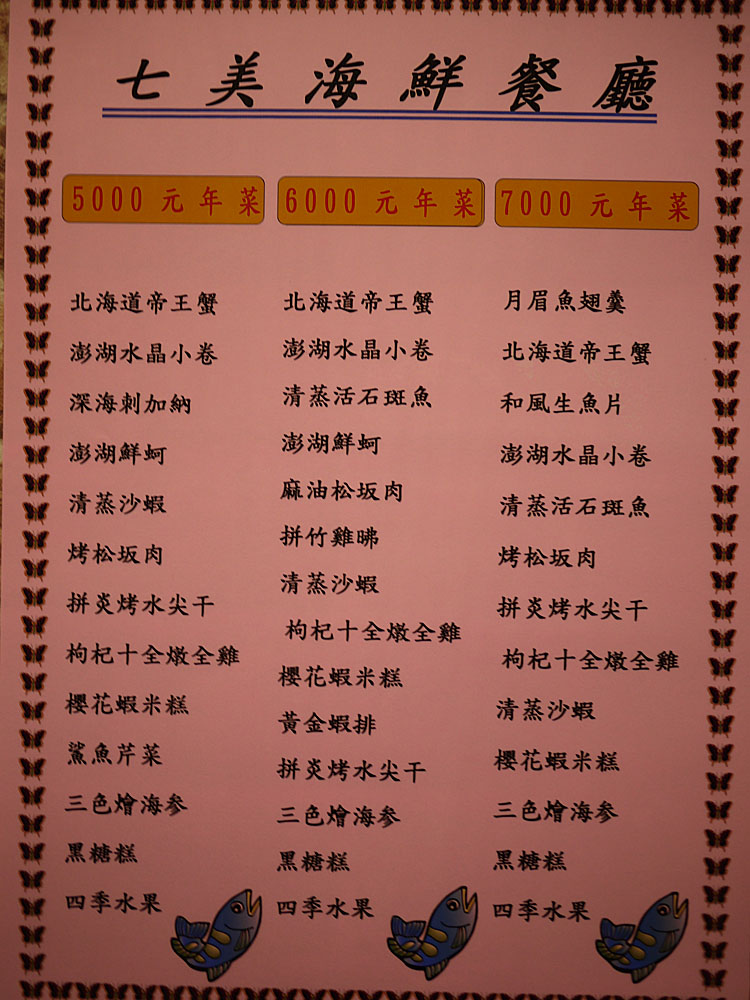 七美海鮮餐廳
5000元年菜
北海道帝王蟹
澎湖水晶小卷
深海刺加納
澎湖鮮蚵
清蒸沙蝦
烤松坂肉
拼炎烤水尖干
枸杞十全燉全雞
櫻花蝦米糕
鯊魚芹菜
三色燴海参
黑糖糕
四季水果
6000元年菜
北海道帝王蟹
澎湖水晶小卷
清蒸活石斑魚
澎湖鮮蚵
麻油松坂肉
拼竹雞昲
清蒸沙蝦
枸杞十全燉全雞
櫻花蝦米糕
黃金蝦排
拼炎烤水尖干
三色燴海参
黑糖糕
四季水果
7000元年菜
月眉魚翅羹
北海道帝王蟹
和風生魚片
澎湖水晶小卷
清蒸活石斑魚
烤松坂肉
拼炎烤水尖干
枸杞十全燉全雞
清蒸沙蝦
櫻花蝦米糕
三色燴海参
黑糖糕
四季水果